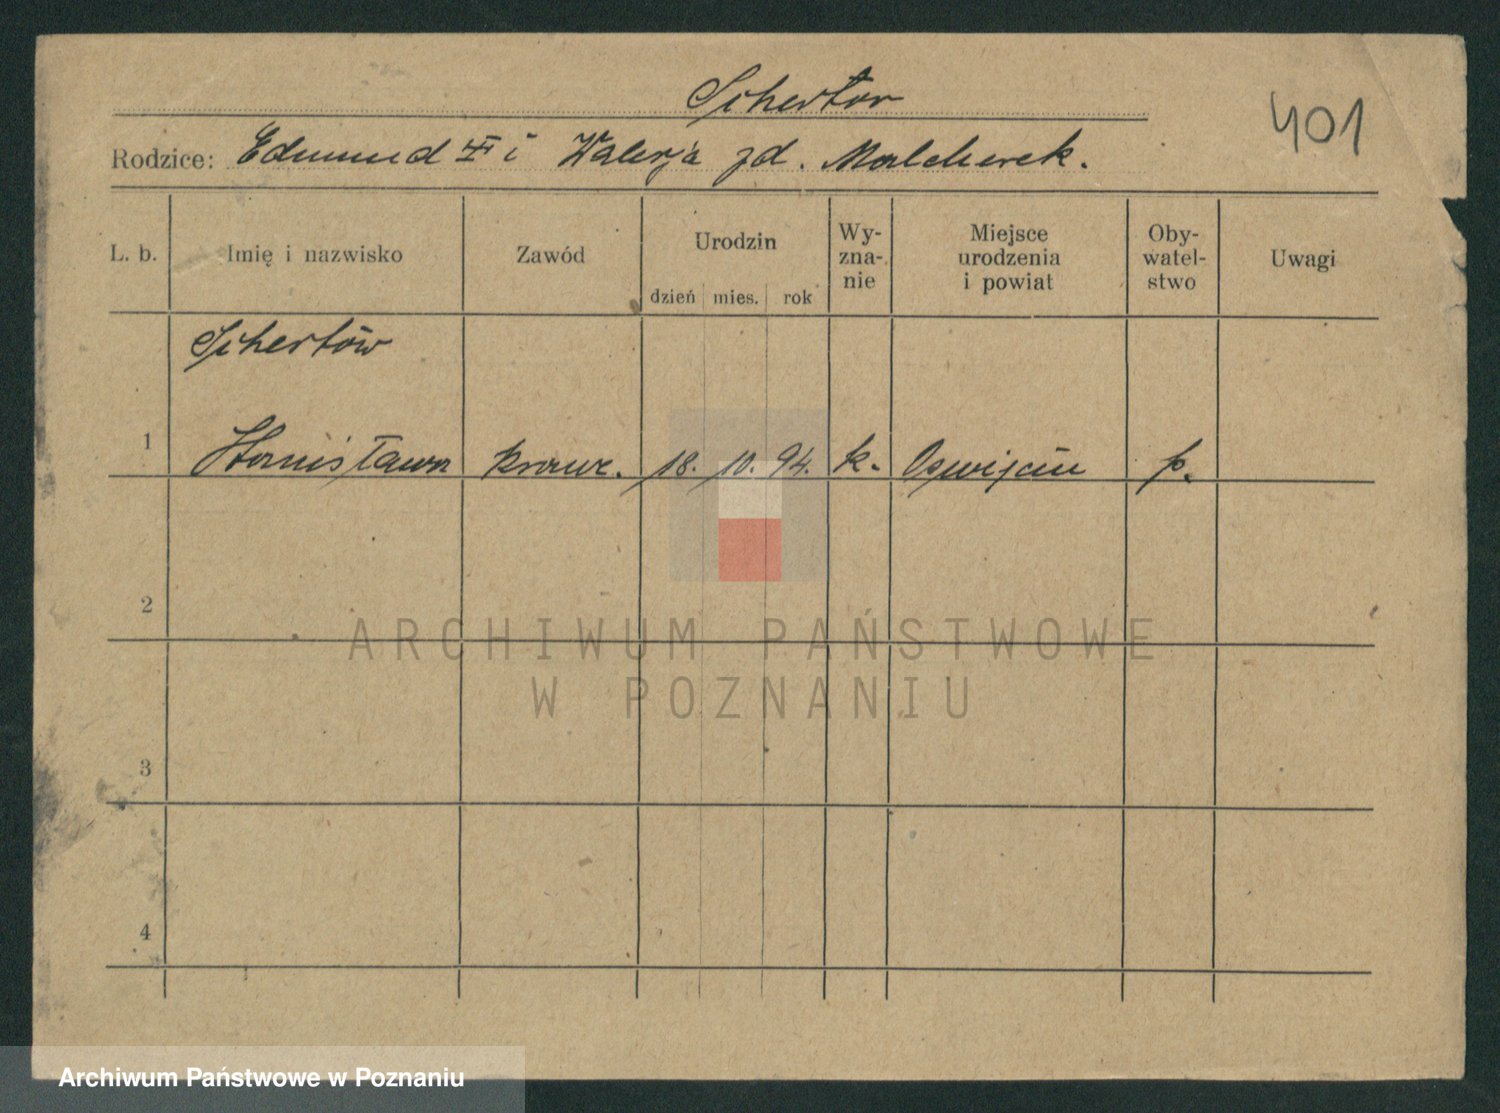 Schertor
401
Rodzice: Edmund i Walerja zd. Malcherek.
L. b. Imię i nazwisko Zawód Urodzin dzień mies. rok Wy-zna-nie Miejsce urodzenia i powiat Oby-watel-stwo Uwagi
Schertów
1 Stanisława krawc. 18. 10. 94. k. p.
2
ARCHIWUM PAŃSTWOWE
W POZNANIU
3
4
Archiwum Państwowe w Poznaniu